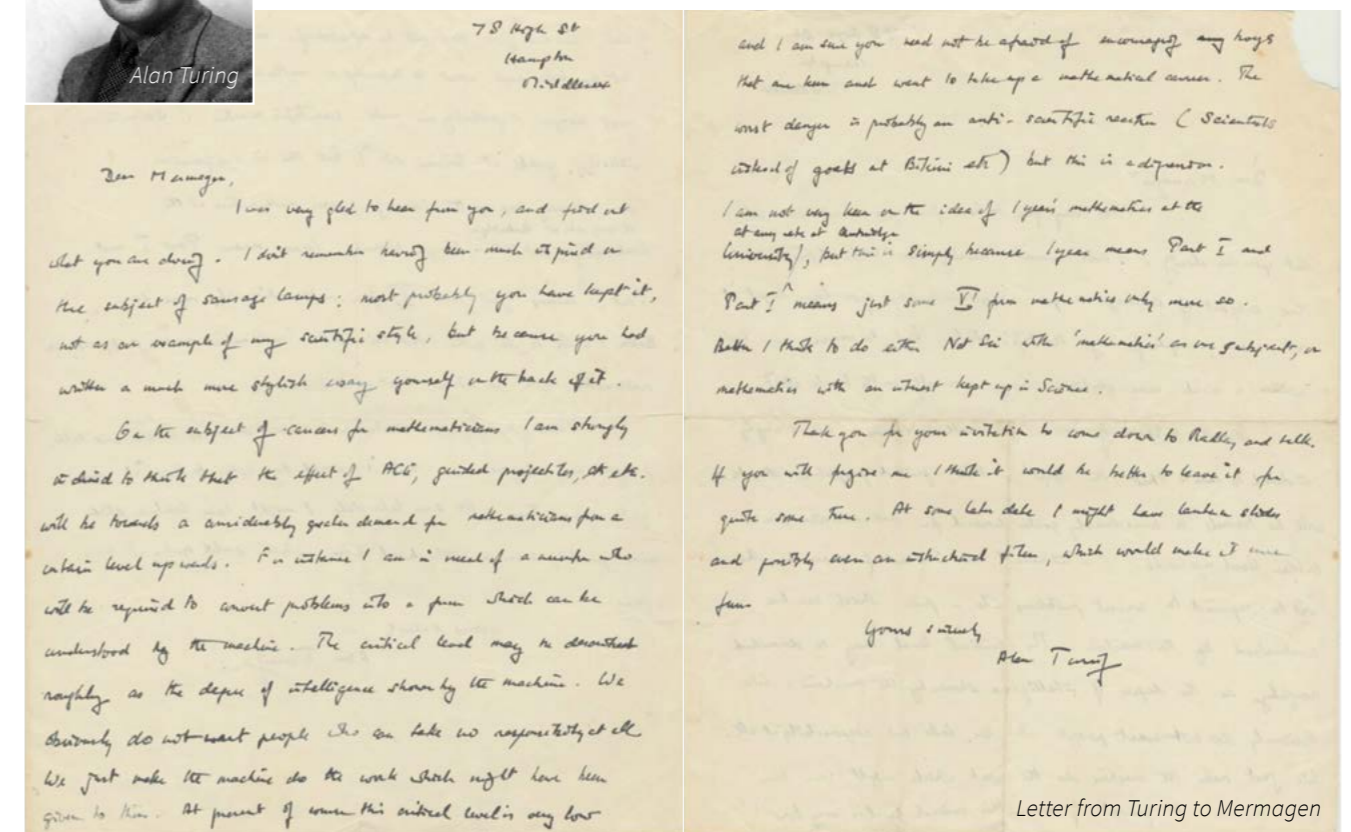 Alan Turing
78 High St
Hampton
Middlesex
Dear Mermagen,
I was very glad to hear from you, and find out
what you are doing. I don't remember having been much inspired on
the subject of sausage lamps; most probably you have kept it,
not as an example of my scientific style, but because you had
written a much more stylish essay yourself on the back of it.
On the subject of careers for mathematicians I am strongly
inclined to think that the effect of ACE, guided projectiles, etc etc.
will be towards a considerably greater demand for mathematicians from a
certain level upwards. For instance I am in need of a number who
will be required to convert problems into a form which can be
understood by the machine. The critical level may be described
roughly as the degree of intelligence shown by the machine. We
obviously do not want people who can take no responsibility at all
We just make the machine do the work which might have been
given to them. At present of course this critical level is very low
and I am sure you need not be afraid of encouraging any boys
that are keen and want to take up a mathematical career. The
worst danger is probably an anti-scientific reaction (Scientists
instead of goats at Bikini etc) but this is a digression.
I am not very keen on the idea of 1 year's mathematics at the
at any rate at Cambridge
University, but this is simply because 1 year means Part I and
Part I means just some VI form mathematics only more so.
Better I think to do either Nat Sci with 'mathematics' as one subject, or
mathematics with an interest kept up in Science.
Thank you for your invitation to come down to Radley and talk.
If you will forgive me I think it would be better to leave it for
quite some time. At some later date I might have lantern slides
and possibly even an instructional film, which would make it more
fun.
Yours sincerely
Alan Turing
Letter from Turing to Mermagen